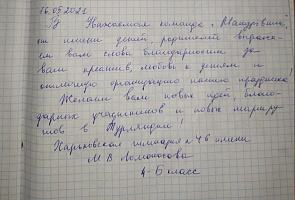 16.05.2021
Уважаемая команда
от имени детей, родителей выражаем
вам слова благодарности за
ваш креатив, любовь к детям и
отличную организацию нашего праздника!
Желаем вам новых идей, благодарных
участников и новых маршрутов
в
Харьковская гимназия №46 имени
М В Ломоносова
4-Б класс